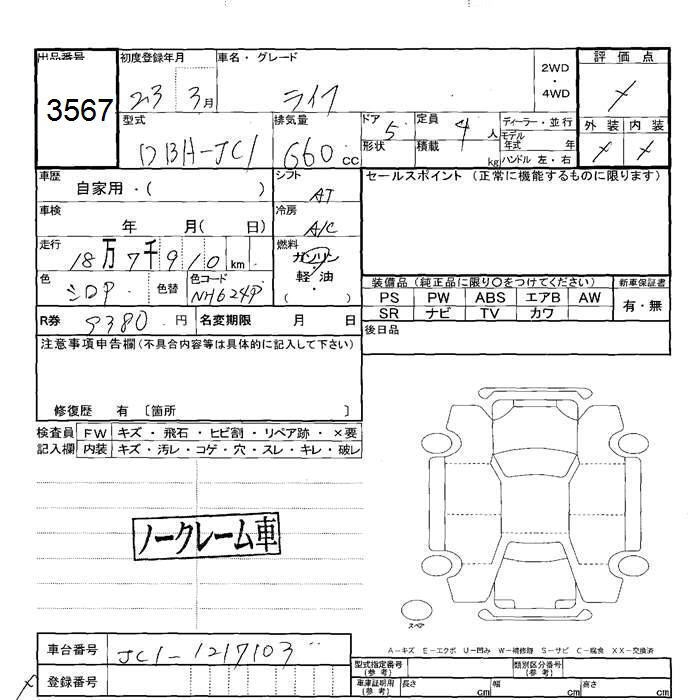 出品番号
3567
初度登録年月
23 3月
車名・グレード
ライフ
2WD
・
4WD
評価点
型式
DBA-JC1
排気量
660 cc
ドア
5
形状
定員
4 人
積載
kg
ディーラー・並行
モデル
年式 年
ハンドル 左・右
外装 内装
車歴
自家用・( )
シフト
AT
セールスポイント (正常に機能するものに限ります)
車検
年 月( 日)
冷房
A/C
走行
18万7千910 km
燃料
ガソリン
軽・油
( )
色
シロP
色替
色コード
NH624P
装備品 (純正品に限り○をつけてください)
新車保証書
PS PW ABS エアB AW
SR ナビ TV カワ
有・無
R券 9380 円
名変期限 月 日
後日品
注意事項申告欄(不具合内容等は具体的に記入して下さい)
修復歴 有 〔箇所 〕
検査員
記入欄
FW キズ・飛石・ヒビ割・リペア跡・×要
内装 キズ・汚レ・コゲ・穴・スレ・キレ・破レ
ノークレーム車
スペア
A-キズ E-エクボ U-凹み W-補修跡 S-サビ C-腐食 XX-交換済
車台番号
JC1-1217103
登録番号
型式指定番号
(参考)
類別区分番号
(参考)
車庫証明用
(参考)
長さ cm
幅 cm
高さ cm